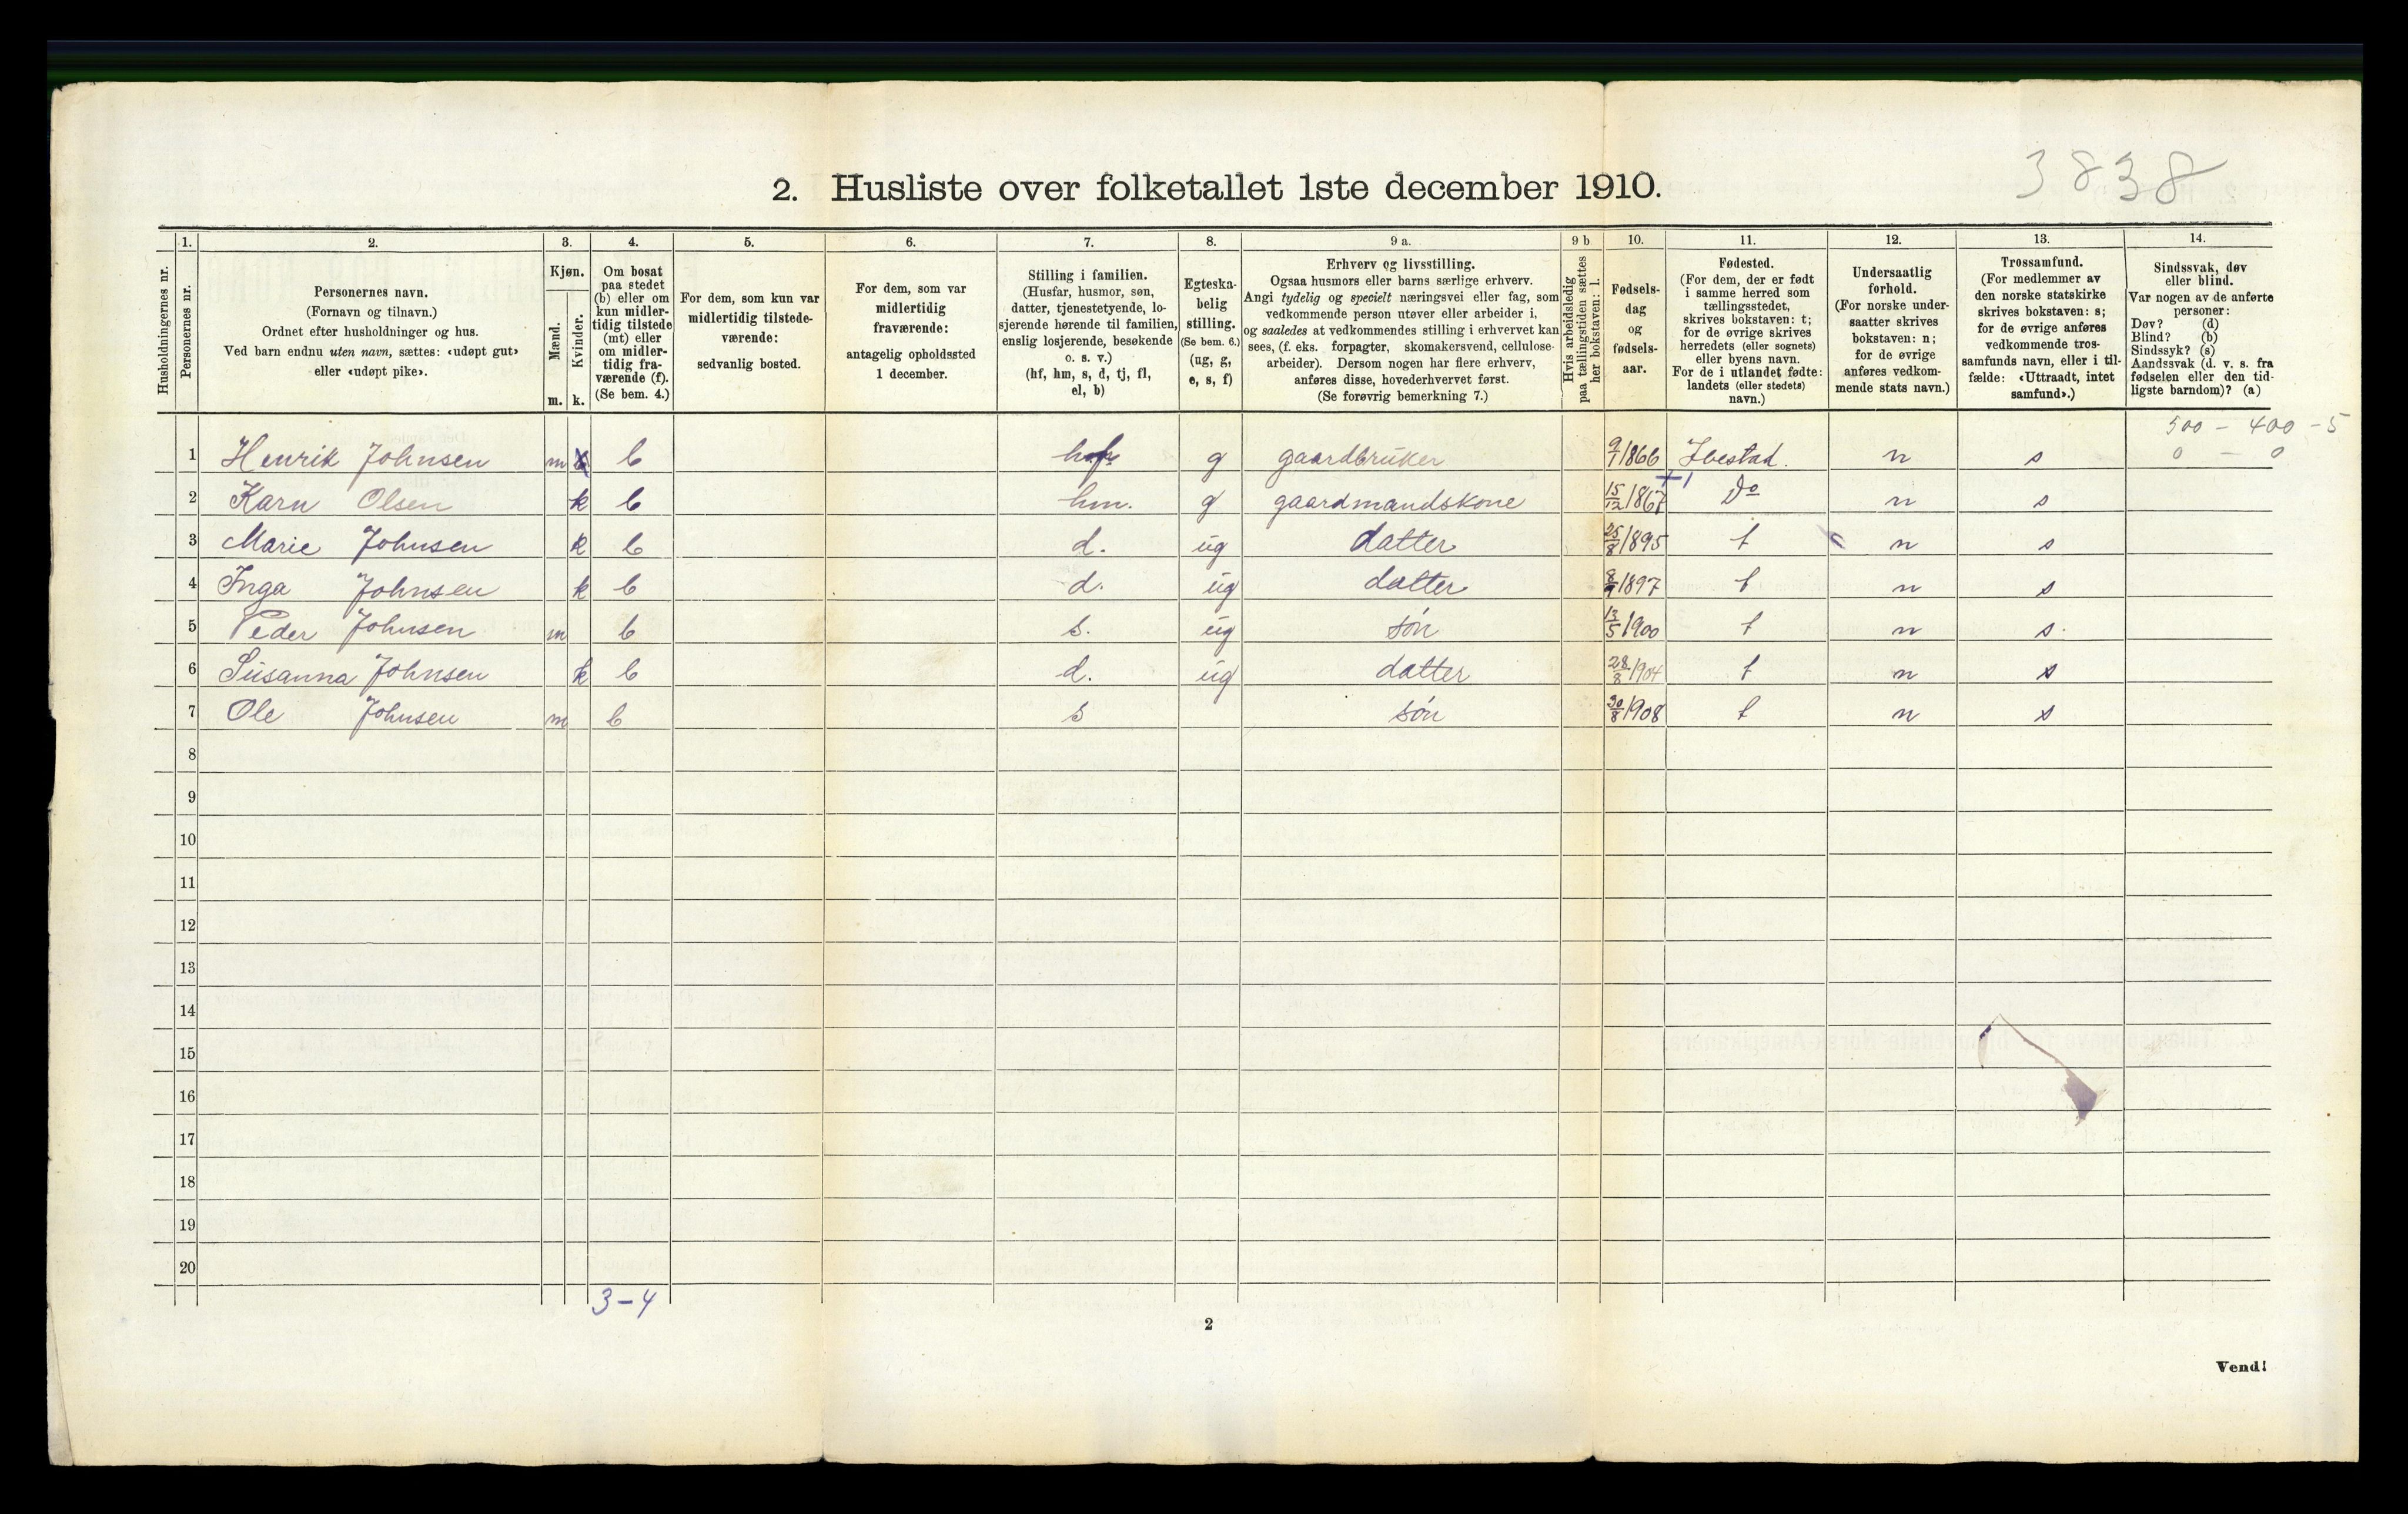 3838
2. Husliste over folketallet 1ste december 1910.
1. 2. 3. 4. 5. 6. 7. 8. 9 a. 9 b 10. 11. 12. 13. 14.
Husholdningernes nr.
Personernes nr.
Personernes navn.
(Fornavn og tilnavn.)
Ordnet efter husholdninger og hus.
Ved barn endnu uten navn, sættes: «udøpt gut»
eller «udøpt pike».
Kjøn.
Mænd.
Kvinder.
m. k.
Om bosat
paa stedet
(b) eller om
kun midler-
tidig tilstede
(mt) eller
om midler-
tidig fra-
værende (f).
(Se bem. 4.)
For dem, som kun var
midlertidig tilstede-
værende:
sedvanlig bosted.
For dem, som var
midlertidig
fraværende:
antagelig opholdssted
1 december.
Stilling i familien.
(Husfar, husmor, søn,
datter, tjenestetyende, lo-
sjerende hørende til familien,
enslig losjerende, besøkende
o. s. v.)
(hf, hm, s, d, tj, fl,
el, b)
Egteska-
belig
stilling.
(Se bem. 6.)
(ug, g,
e, s, f)
Erhverv og livsstilling.
Ogsaa husmors eller barns særlige erhverv.
Angi tydelig og specielt næringsvei eller fag, som
vedkommende person utøver eller arbeider i,
og saaledes at vedkommendes stilling i erhvervet kan
sees, (f. eks. forpagter, skomakersvend, cellulose-
arbeider). Dersom nogen har flere erhverv,
anføres disse, hovederhvervet først.
(Se forøvrig bemerkning 7.)
Hvis arbeidsledig
paa tællingstiden sættes
her bokstaven: l.
Fødsels-
dag
og
fødsels-
aar.
Fødested.
(For dem, der er født
i samme herred som
tællingsstedet,
skrives bokstaven: t;
for de øvrige skrives
herredets (eller sognets)
eller byens navn.
For de i utlandet fødte:
landets (eller stedets)
navn.)
Undersaatlig
forhold.
(For norske under-
saatter skrives
bokstaven: n;
for de øvrige
anføres vedkom-
mende stats navn.)
Trossamfund.
(For medlemmer av
den norske statskirke
skrives bokstaven: s;
for de øvrige anføres
vedkommende tros-
samfunds navn, eller i til-
fælde: «Uttraadt, intet
samfund».)
Sindssvak, døv
eller blind.
Var nogen av de anførte
personer:
Døv? (d)
Blind? (b)
Sindssyk? (s)
Aandssvak (d. v. s. fra
fødselen eller den tid-
ligste barndom)? (a)
500 - 400 - 5
0 - 0
1 Henrik Johnsen m b hf g gaardbruker 9/1 1866 Ibestad. n s
2 Karn Olsen k b hm. g gaardmandskone 15/12 1867 Do n s
3 Marie Johnsen k b d. ug datter 25/8 1895 t n s
4 Inga Johnsen k b d. ug datter 8/9 1897 t n s
5 Peder Johnsen m b s. ug søn 13/5 1900 t n s.
6 Susanna Johnsen k b d. ug datter 28/8 1904 t n s
7 Ole Johnsen m b s søn 30/8 1908 t n s
8
9
10
11
12
13
14
15
16
17
18
19
20
3-4
2
Vend!